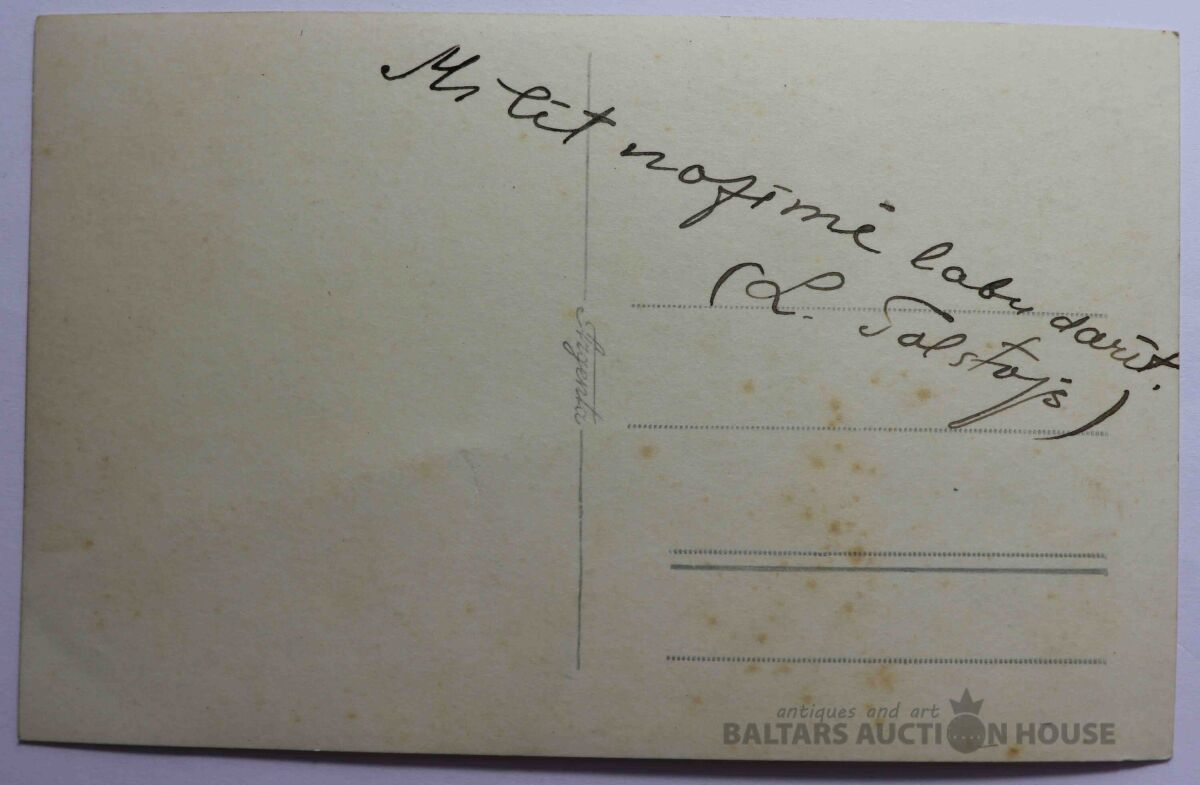 Mīlēt nozīmē labu darīt.
(L. Tolstojs)
antiques and art
BALTARS AUCTION HOUSE